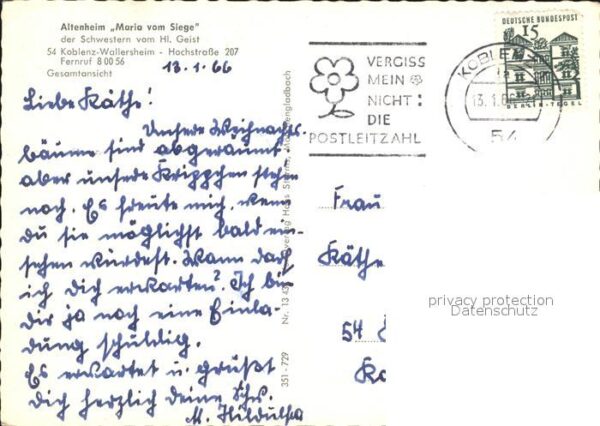 Altenheim „Maria vom Siege"
der Schwestern vom Hl. Geist
54 Koblenz-Wallersheim - Hochstraße 207
Fernruf 8 00 56
Gesamtansicht
13.1.66
Liebe Käthe!
Unsere Weihnachts-
bäume sind abgeräumt
aber unsere Krippchen stehn
noch. Es freute mich, wenn
du sie möglichst bald ein-
sehen würdest. Wann darf
ich dich erwarten? Ich bin
Dir ja noch eine Einla-
dung schuldig.
Es erwartet u. grüßt
Dich herzlich deine Schw.
M.
351 - 729 Nr. 13 43 Verlag Hans gladbach
VERGISS
MEIN
NICHT:
DIE
POSTLEITZAHL
KOBLEN
13.1.66
54
DEUTSCHE BUNDESPOST
15
BERLIN-TEGEL
Frau
Käthe
54
Ko
privacy protection
Datenschutz